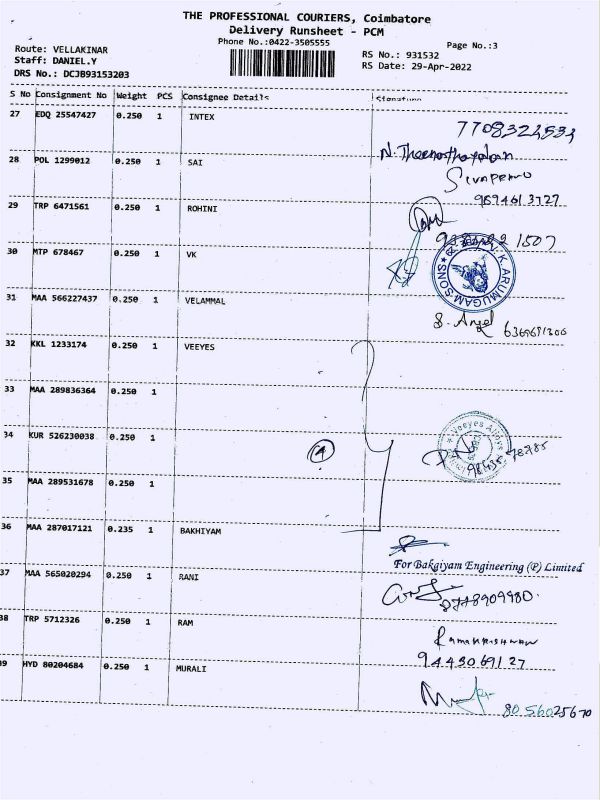 THE PROFESSIONAL COURIERS, Coimbatore
Delivery Runsheet - PCM
Phone No.:0422-3505555
Page No.:3
Route: VELLAKINAR
Staff: DANIEL.Y
DRS No.: DCJB93153203
RS No.: 931532
RS Date: 29-Apr-2022
S No Consignment No Weight PCS Consignee Details Signature
27 EDQ 25547427 0.250 1 INTEX
28 POL 1299012 0.250 1 SAI
29 TRP 6471561 0.250 1 ROHINI
30 MTP 678467 0.250 1 VK
V.K. ARUMUGAM SONS
31 MAA 566227437 0.250 1 VELAMMAL
S. Angel
32 KKL 1233174 0.250 1 VEEYES
33 MAA 289836364 0.250 1
34 KUR 526230038 0.250 1
4
Veeyes Alloys
35 MAA 289531678 0.250 1
36 MAA 287017121 0.235 1 BAKHIYAM
For Bakgiyam Engineering (P) Limited
37 MAA 565020294 0.250 1 RANI
8778909980.
38 TRP 5712326 0.250 1 RAM
RAMAKRISHNAN
9442069127
39 HYD 80204684 0.250 1 MURALI
8056025670